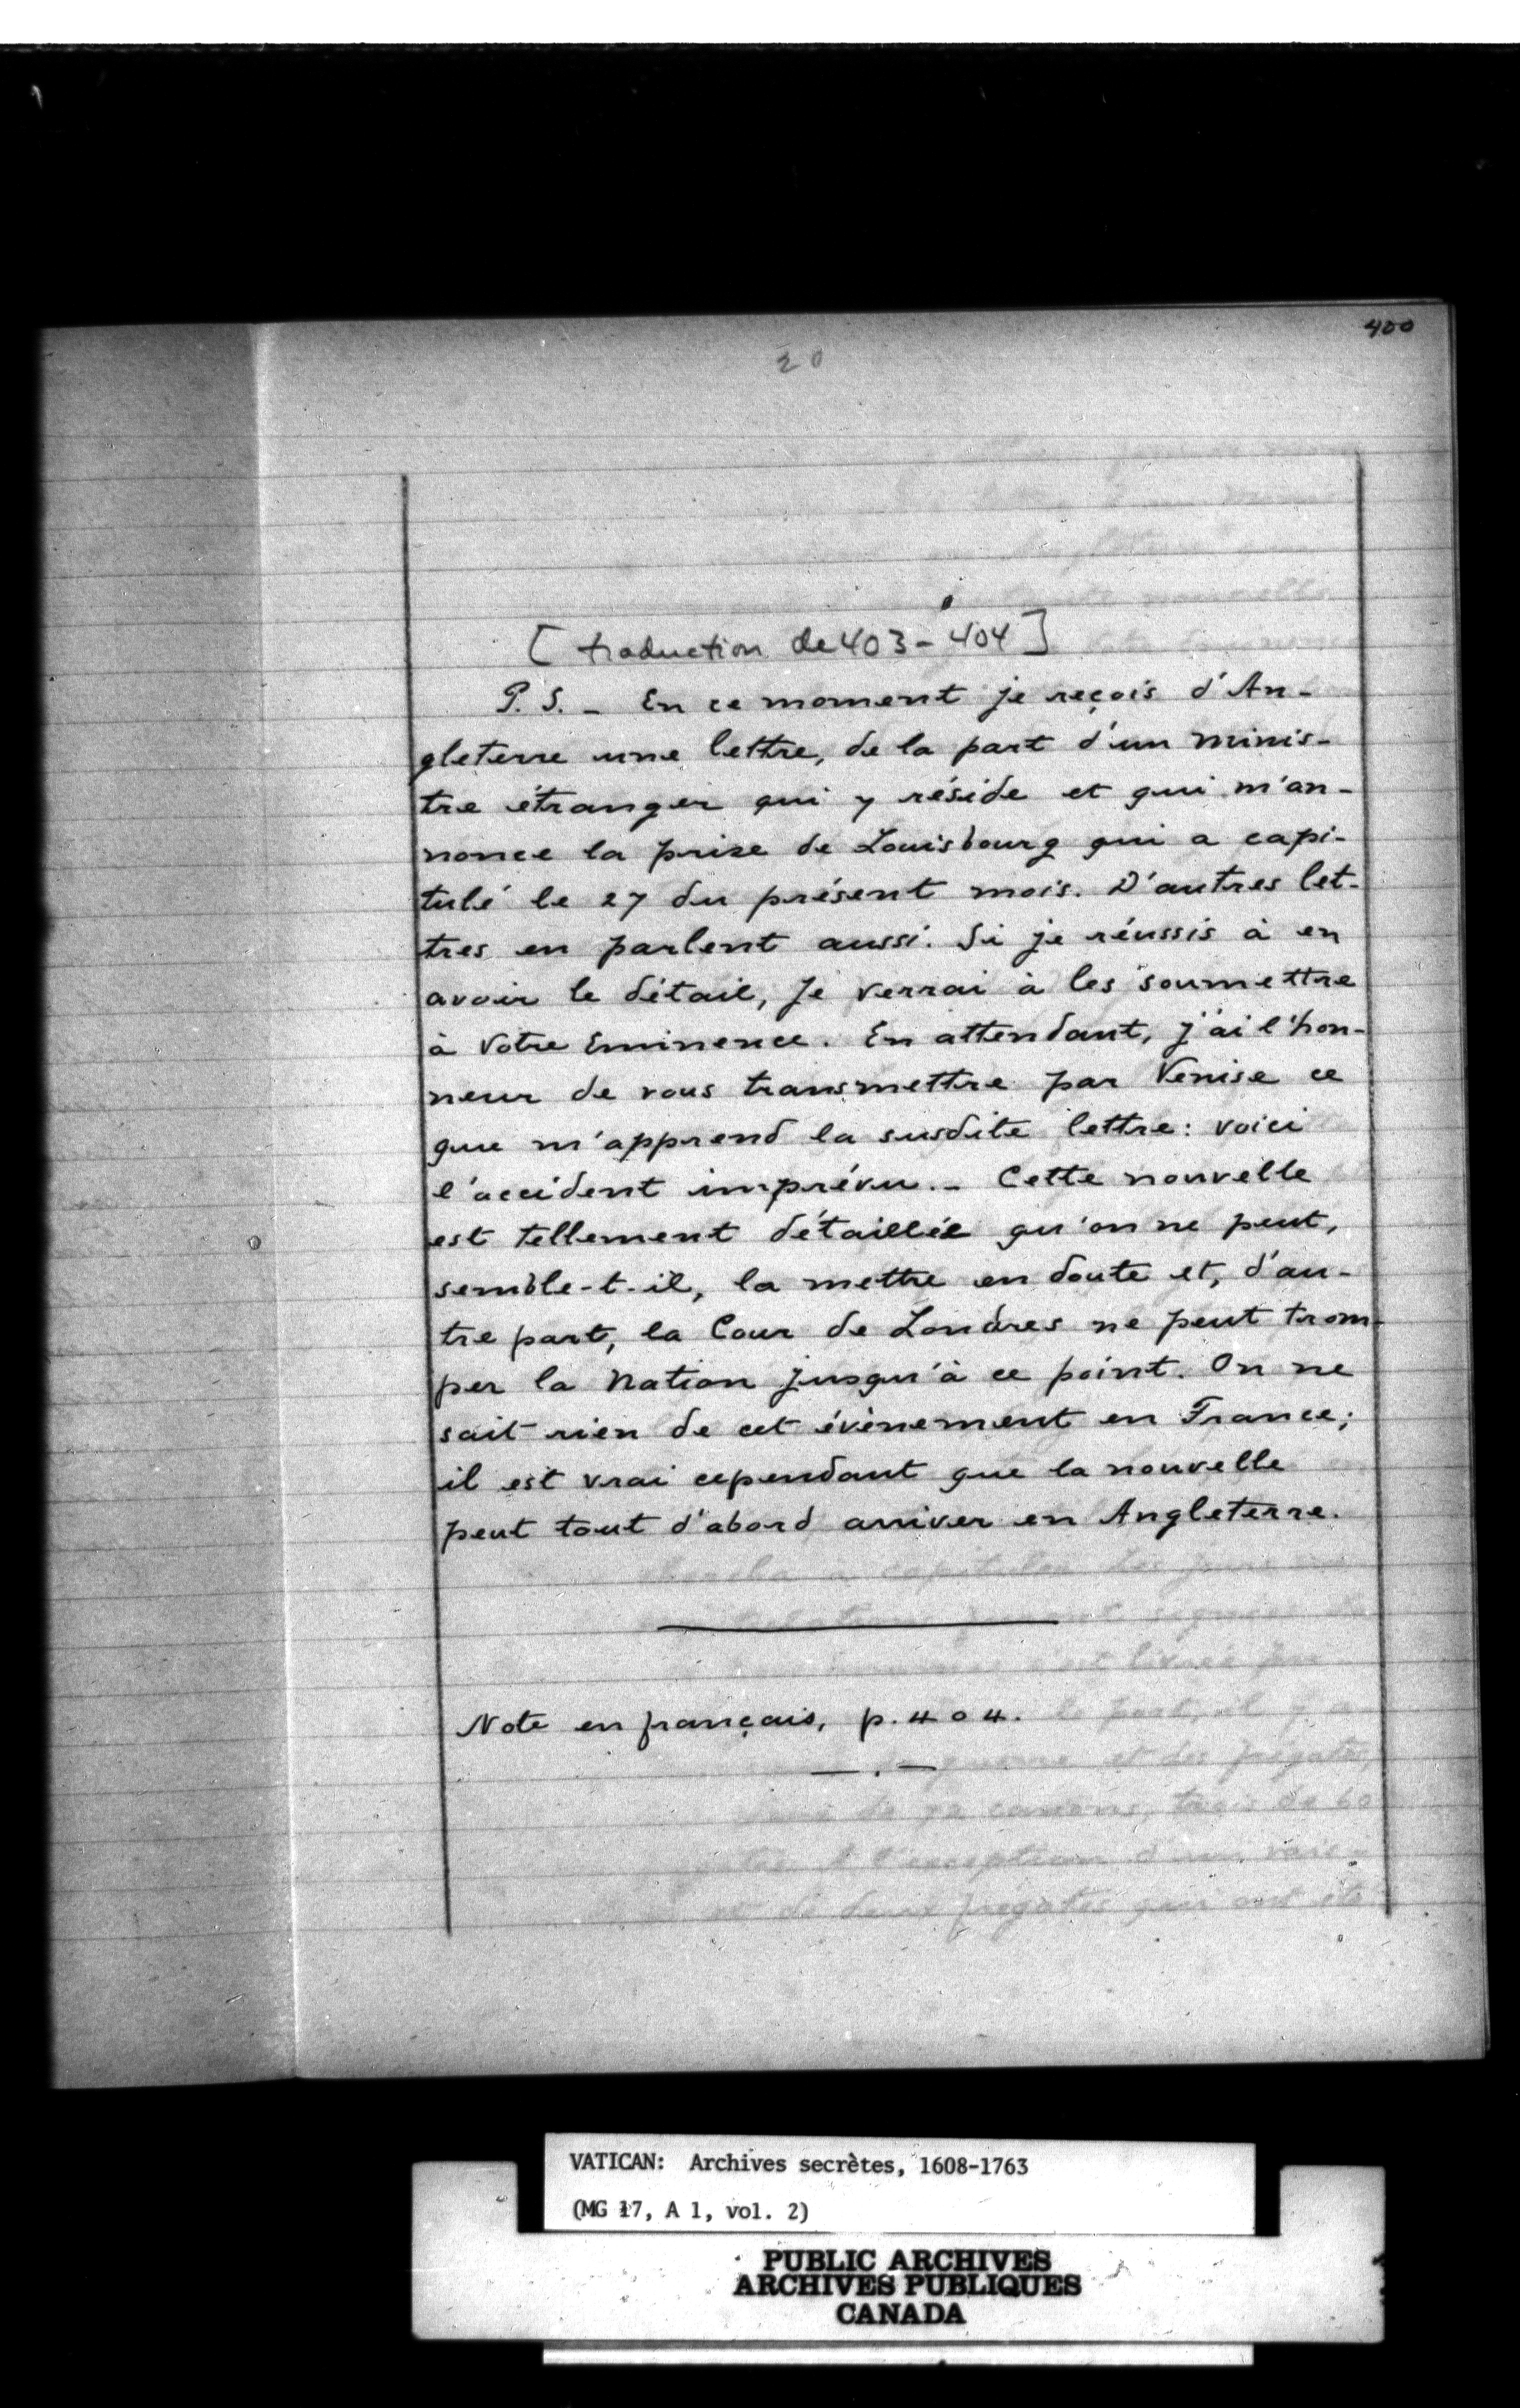 400
20
[traduction de 403-404]
P. S. - En ce moment je reçois d'An-
gleterre une lettre, de la part d'un minis-
tre étranger qui y réside et qui m'an-
nonce la prise de Louisbourg qui a capi-
tulé le 27 du présent mois. D'autres let-
tres en parlent aussi. Si je réussis à en
avoir le détail, je verrai à les soumettre
à Votre Eminence. En attendant, j'ai l'hon-
neur de vous transmettre par Venise ce
que m'apprend la susdite lettre: voici
l'accident imprévu. - Cette nouvelle
est tellement détaillée qu'on ne peut,
semble-t-il, la mettre en doute et, d'au-
tre part, la Cour de Londres ne peut trom-
per la Nation jusqu'à ce point. On ne
sait rien de cet évènement en France;
il est vrai cependant que la nouvelle
peut tout d'abord arriver en Angleterre.
Note en français, p. 404.
VATICAN: Archives secrètes, 1608-1763
(MG 17, A 1, vol. 2)
PUBLIC ARCHIVES
ARCHIVES PUBLIQUES
CANADA